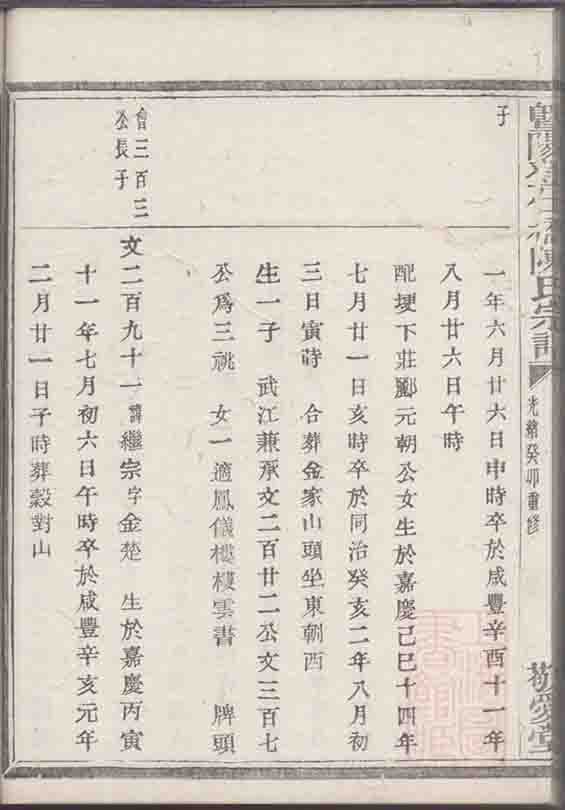 子
一年六月廿六日申時卒於咸豐辛酉十一年
八月廿六日午時
配埂下莊酈元朝公女生於嘉慶己巳十四年
七月廿一日亥時卒於同治癸亥二年八月初
三日寅蒔　合葬金家山頭坐東朝西
生一子　武江兼承文二百廿二公文三百七
公爲三祧　女一適鳳儀樓樓雲書　牌頭
會三百三
公長子
文二百九十一諱繼宗字金楚　生於嘉慶丙寅
十一年七月初六日午時卒於咸豐辛亥元年
二月廿一日子時葬穀對山
陳氏宗譜
光緒癸卯重修
敬愛堂